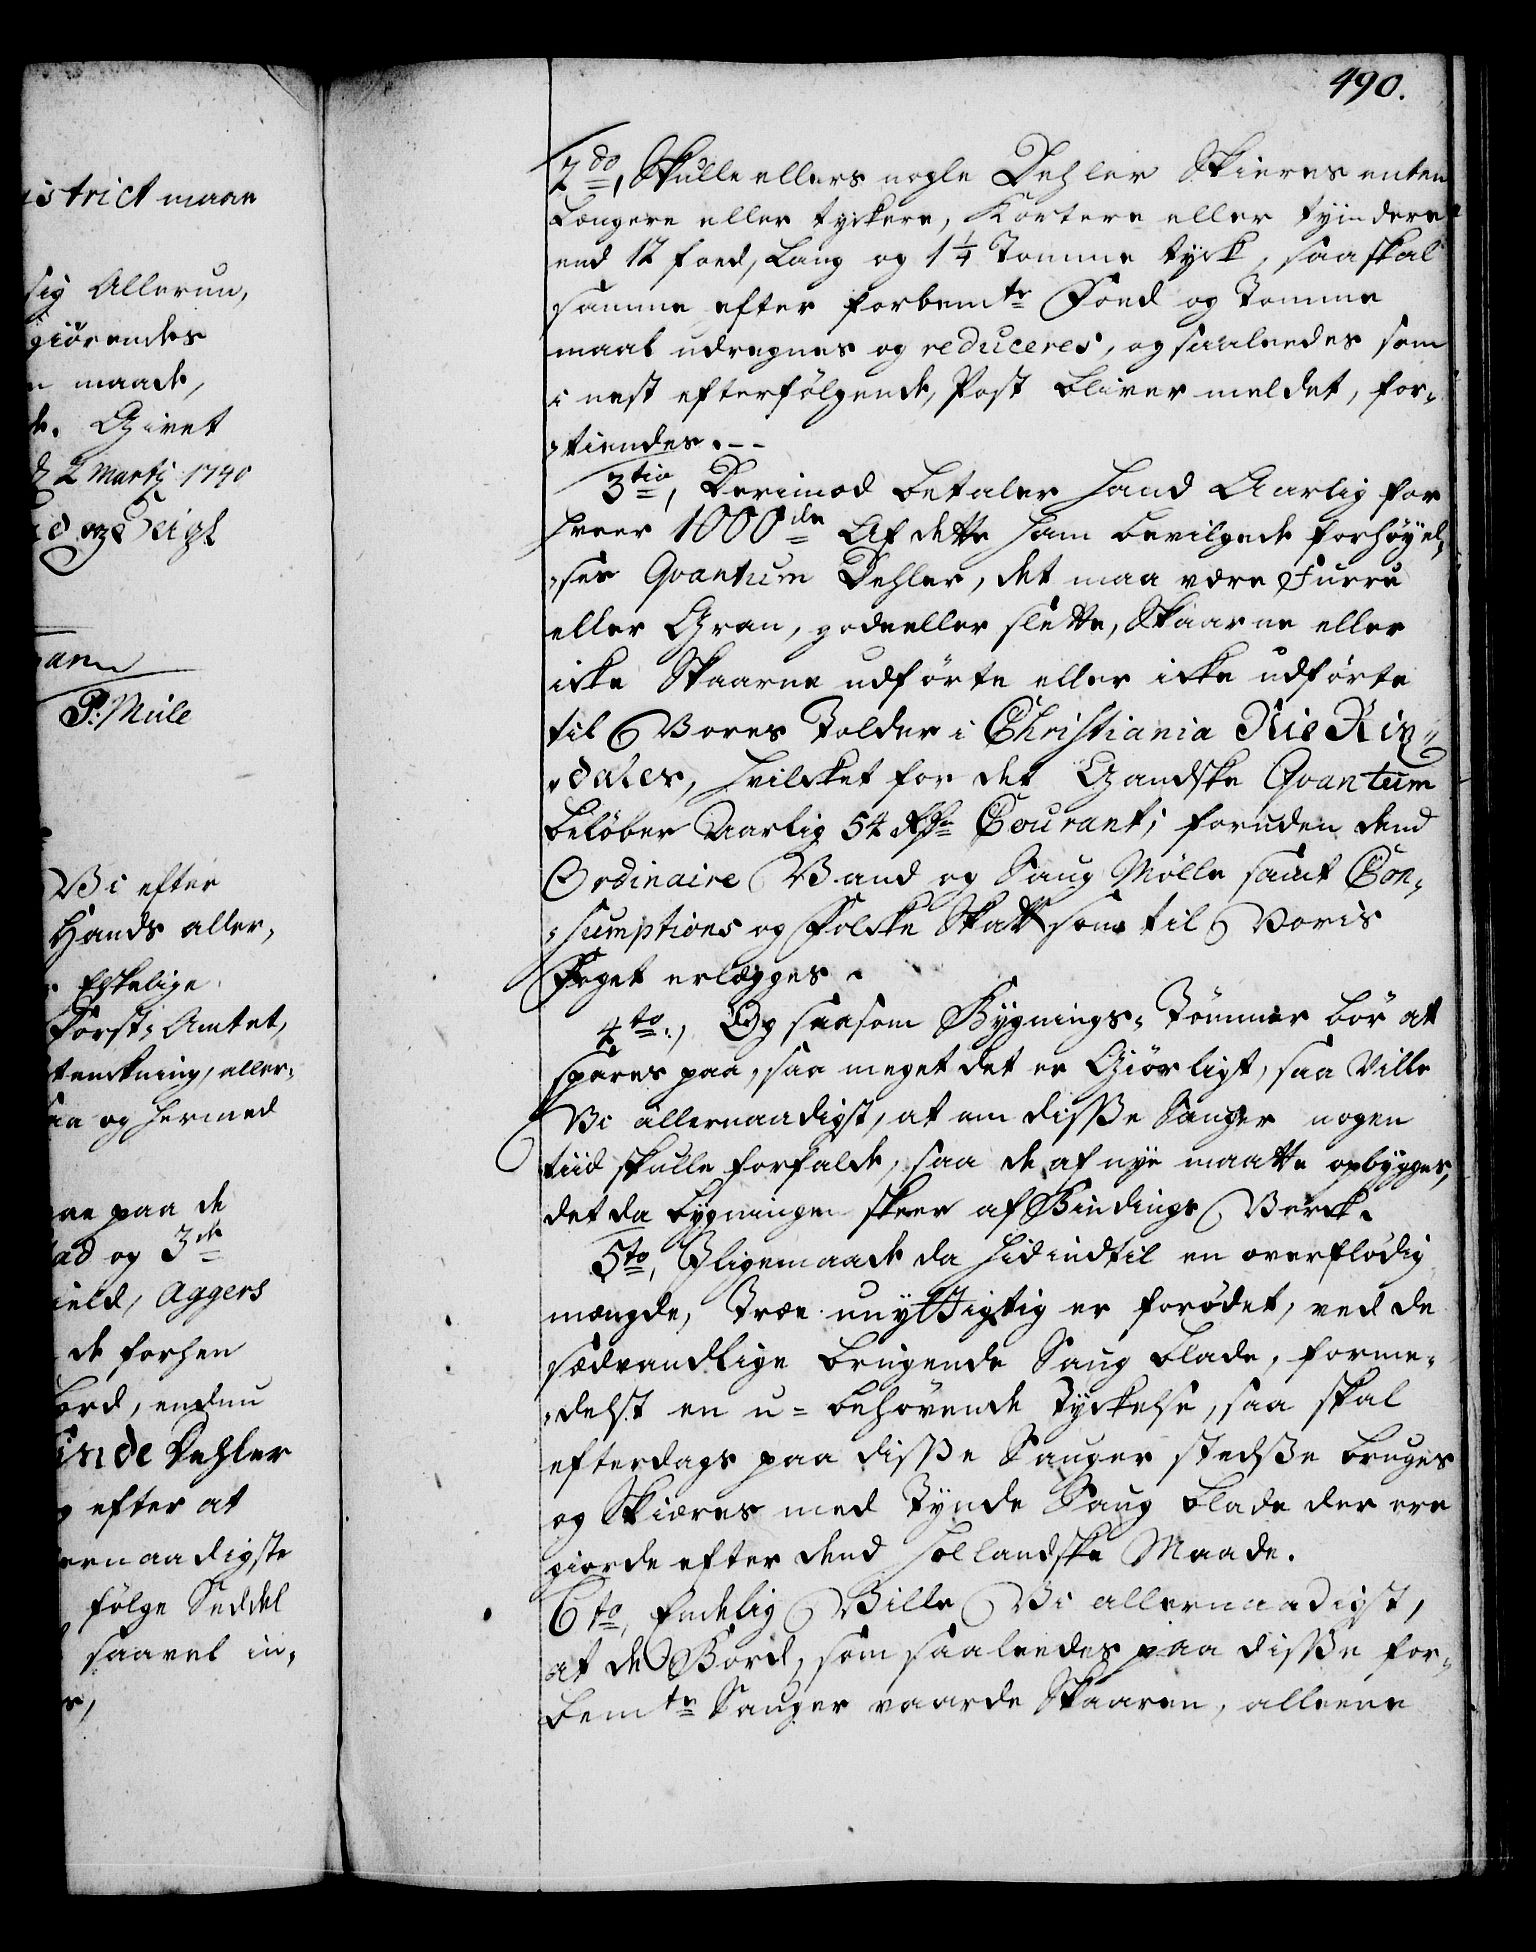 490.
istrict maae
sig Allerun,
giörendes
maade,
Givet
d 2 Martj 1740
P: Mule
Vi efter
Hands aller,
Elskelige
Forst, Amtet,
tenckning, aller,
aa og hermed
paa de
ad og 3de
ield, Aggers
de forhen
bord, endnu
inde Dehler
efter at
ernaadigste
følge Seddel
saavel in,
2do, Skulle ellers nogle Dehler Skieres enten
Længere eller tyckere, Kortere eller tyindere
end 12 foed, Lang og 1 1/4 Tomme tyck, saa skal
samme efter forbemte Foed og Tomme
maal udregnes og reduceres, og saaleedes som
i nest efterfölgende, Post bliver meldet, for„
„tiendes. --
3tio, Derimod betaler hand Aarlig for
hver 1000de Af dette ham bevilgede forhöyel„
„ses Qvantum Dehler, det maa være Furru
eller Gran, gode eller slette, Skaarne eller
icke Skaarne udförte eller icke udförte
til Vores Tolder i Christiania Nie Rix„
„daler, hvilcket for det Gandske Qvantum
beløber Aarlig 54 Rdr Courant; foruden dend
Ordinaire Vand og Saug Mölle samt Con„
„sumptions og Folcke Skatt som til Voris
Foget erlægges.
4to., Og saasom Bygnings, Tömmer bör at
spares paa, saa meget det er Giörligt, saa Ville
Vi allernaadigst, at om disse Sauger nogen
tiid skulle forfalde, saa de af nye maatte opbygges,
det da bygningen skeer af Bindings Verck.
5to, Iligemaade da hidindtil en overflödig
mængde, Træe unyttigtig er forödet, ved de
sædvandlige brugende Saug blade, forme„
„delst en u= behövende Tyckelse, saa skal
efterdags paa disse Sauger stedsse bruges
og Skieres med Tynde Saug blade der ere
giorde efter dend Hollandske Maade.
6to, Endelig Ville Vi allernaadigst,
at de Bord, som saaleedes paa disse for„
bemte Sauger vaarde Skaaren, alleene